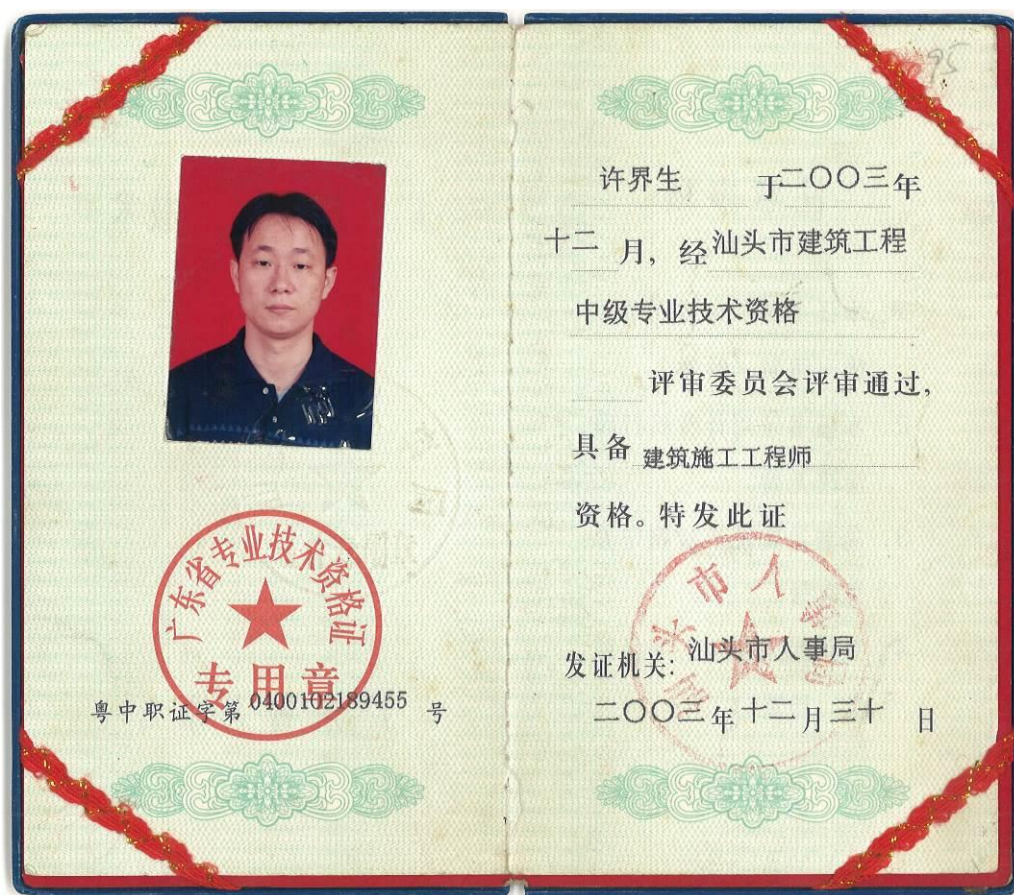 广东省专业技术资格证
专用章
粤中职证字第 0400102189455 号
95
许界生 于二〇〇三年
十二月，经汕头市建筑工程
中级专业技术资格
评审委员会评审通过，
具备 建筑施工工程师
资格。特发此证
汕头市人事局
发证机关：汕头市人事局
二〇〇三年十二月三十日